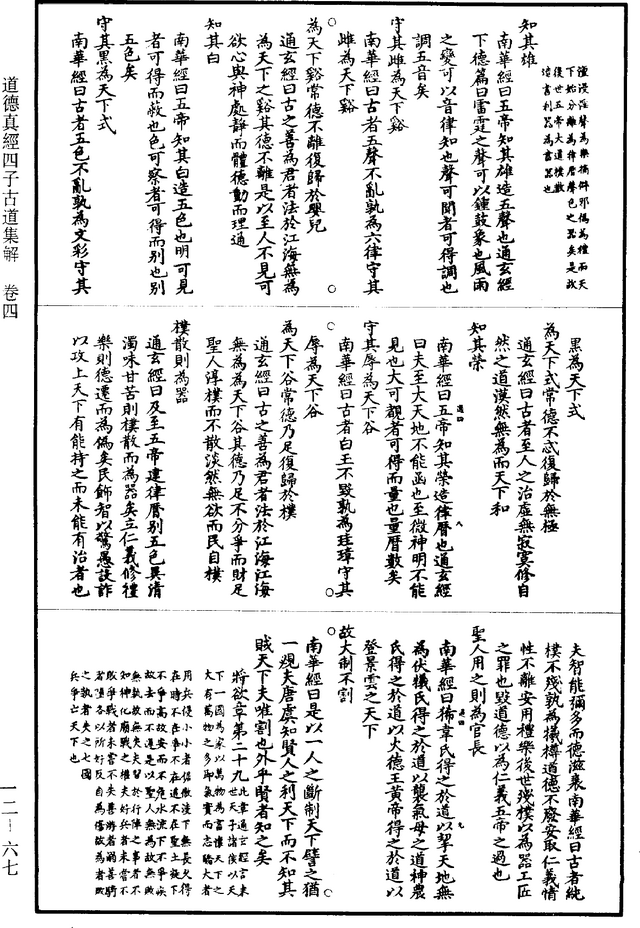 道德真經四子古道集解　卷四
澶漫淫聲為樂摘僻邪偽為禮而天
下始分離為律居聲色之器矣是故
後世五帝大道樸散
諭言利器為言器也
知其雄
南華經曰五帝知其雄造五聲也通玄經
下德篇曰雷霆之聲可以鐘鼓象也風雨
之變可以音律知也聲可聞者可得調也
調五音矣
守其雌為天下谿
南華經曰古者五聲不亂孰為六律守其
雌為天下谿
為天下谿常德不離復歸於嬰兒
通玄經曰古之善為君者法於江海無為
為天下之谿其德不離是以至人不見可
欲心與神處靜而體德動而理通
知其白
南華經曰五帝知其白造五色也明可見
者可得而蔽也色可察者可得而別也別
五色矣
守其黑為天下式
南華經曰古者五色不亂孰為文彩守其
黑為天下式
為天下式常德不忒復歸於無極
通玄經曰古者至人之治虛無寂寞修自
然之道漠然無為而天下和
知其榮
南華經曰五帝知其榮造律曆也通玄經
曰夫至大天地不能函也至微神明不能
見也大可覩者可得而量也量曆數矣
守其辱為天下谷
南華經曰古者白玉不毀孰為珪璋守其
辱為天下谷
為天下谷常德乃足復歸於樸
通玄經曰古之善為君者法於江海江海
無為為天下谷其德乃足不分爭而財足
聖人淳樸而不散淡然無欲而民自樸
樸散則為器
通玄經曰及至五帝建律曆別五色異清
濁味甘苦則樸散而為器矣立仁義修禮
樂則德遷而為偽矣民飾智以驚愚設詐
以攻上天下有能持之而未能有治者也
夫智能彌多而德滋衰南華經曰古者純
樸不殘孰為犧樽道德不廢安取仁義情
性不離安用禮樂後世殘樸以為器工匠
之罪也毀道德以為仁義五帝之過也
聖人用之則為官長
南華經曰狶韋氏得之於道以挈天地無
為伏犧氏得之於道以襲氣母之道神農
氏得之於道以火德王黃帝得之於道以
登景雲之天下
故大制不割
南華經曰是以一人之斷制天下譬之猶
一覕夫唐虞知賢人之利天下而不知其
賊天下夫唯割也外乎賢者知之矣
將欲章第二十九 此章通玄經言末
世天子諸侯以天
下一國為家以萬物為言懷天下之
大有萬物之多即氣實而志驕大者
用兵侵小小者倨傲凌下無長久得
在時不在爭在道不在聖土處下
不爭高故安而不危水流下不爭疾
故去而不遲是以聖人無為故無敗
無執故無失夫習於行陣之事者不
知神化廟戰之權夫好兵者未嘗不
敗爭戰者未嘗不失善游者溺善騎
者墮各以所好反自為禍欲為者敗
之執者失之七國
兵爭亡天下也
一二－六七